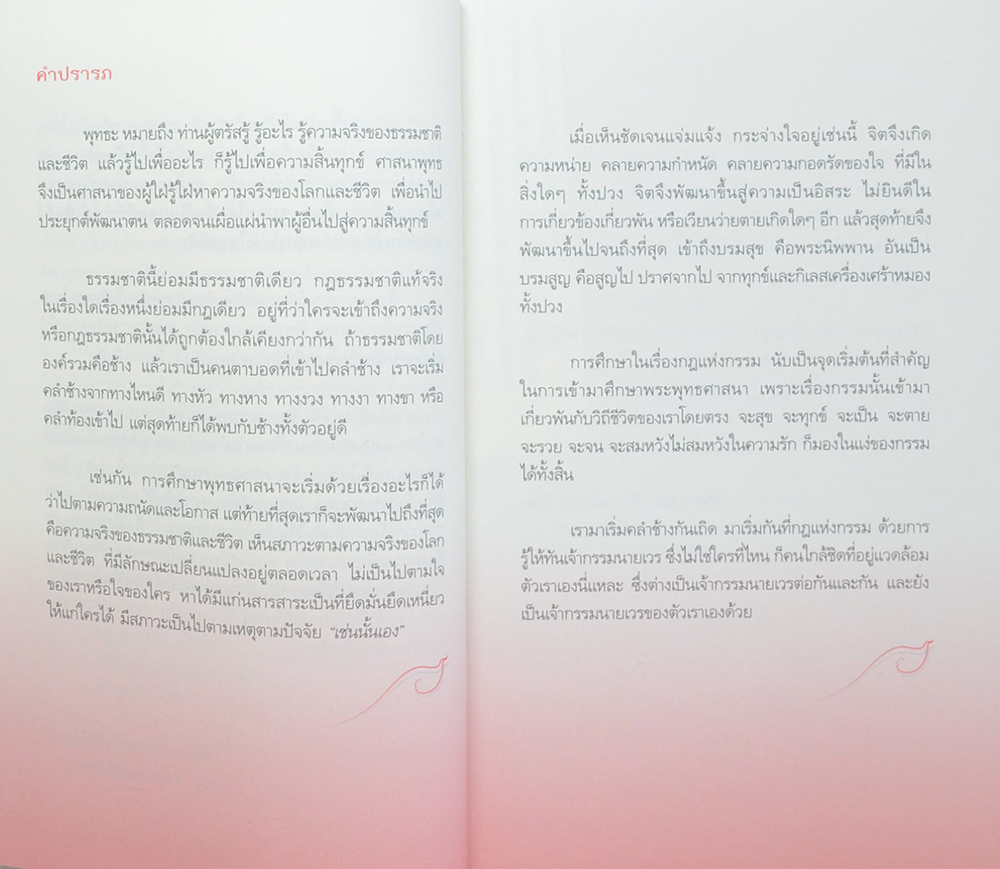 คำปรารภ
พุทธะ หมายถึง ท่านผู้ตรัสรู้ รู้อะไร รู้ความจริงของธรรมชาติ
และชีวิต แล้วรู้ไปเพื่ออะไร ก็รู้ไปเพื่อความสิ้นทุกข์ ศาสนาพุทธ
จึงเป็นศาสนาของผู้ใฝ่รู้ใฝ่หาความจริงของโลกและชีวิต เพื่อนำไป
ประยุกต์พัฒนาตน ตลอดจนเผื่อแผ่นำพาผู้อื่นไปสู่ความสิ้นทุกข์
ธรรมชาตินี้ย่อมมีธรรมชาติเดียว กฎธรรมชาติแท้จริง
ในเรื่องใดเรื่องหนึ่งย่อมมีกฎเดียว อยู่ที่ว่าใครจะเข้าถึงความจริง
หรือกฎธรรมชาตินั้นได้ถูกต้องใกล้เคียงกว่ากัน ถ้าธรรมชาติโดย
องค์รวมคือช้าง แล้วเราเป็นคนตาบอดที่เข้าไปคลำช้าง เราจะเริ่ม
คลำช้างจากทางไหนดี ทางหัว ทางหาง ทางงวง ทางงา ทางขา หรือ
คลำท้องเข้าไป แต่สุดท้ายก็ได้พบกับช้างทั้งตัวอยู่ดี
เช่นกัน การศึกษาพุทธศาสนาจะเริ่มด้วยเรื่องอะไรก็ได้
ว่าไปตามความถนัดและโอกาส แต่ท้ายที่สุดเราก็จะพัฒนาไปถึงที่สุด
คือความจริงของธรรมชาติและชีวิต เห็นสภาวะตามความจริงของโลก
และชีวิต ที่มีลักษณะเปลี่ยนแปลงอยู่ตลอดเวลา ไม่เป็นไปตามใจ
ของเราหรือใจของใคร หาได้มีแก่นสารสาระเป็นที่ยึดมั่นยึดเหนี่ยว
ให้แก่ใครได้ มีสภาวะเป็นไปตามเหตุตามปัจจัย “เช่นนั้นเอง”
เมื่อเห็นชัดเจนแจ่มแจ้ง กระจ่างใจอยู่เช่นนี้ จิตจึงเกิด
ความหน่าย คลายความกำหนัด คลายความกอดรัดของใจ ที่มีใน
สิ่งใดๆ ทั้งปวง จิตจึงพัฒนาขึ้นสู่ความเป็นอิสระ ไม่ยินดีใน
การเกี่ยวข้องเกี่ยวพัน หรือเวียนว่ายตายเกิดใดๆ อีก แล้วสุดท้ายจึง
พัฒนาขึ้นไปจนถึงที่สุด เข้าถึงบรมสุข คือพระนิพพาน อันเป็น
บรมสูญ คือสูญไป ปราศจากไป จากทุกข์และกิเลสเครื่องเศร้าหมอง
ทั้งปวง
การศึกษาในเรื่องกฎแห่งกรรม นับเป็นจุดเริ่มต้นที่สำคัญ
ในการเข้ามาศึกษาพระพุทธศาสนา เพราะเรื่องกรรมนั้นเข้ามา
เกี่ยวพันกับวิถีชีวิตของเราโดยตรง จะสุข จะทุกข์ จะเป็น จะตาย
จะรวย จะจน จะสมหวังไม่สมหวังในความรัก ก็มองในแง่ของกรรม
ได้ทั้งสิ้น
เรามาเริ่มคลำช้างกันเถิด มาเริ่มกันที่กฎแห่งกรรม ด้วยการ
รู้ให้ทันเจ้ากรรมนายเวร ซึ่งไม่ใช่ใครที่ไหน ก็คนใกล้ชิดที่อยู่แวดล้อม
ตัวเราเองนี่แหละ ซึ่งต่างเป็นเจ้ากรรมนายเวรต่อกันและกัน และยัง
เป็นเจ้ากรรมนายเวรของตัวเราเองด้วย